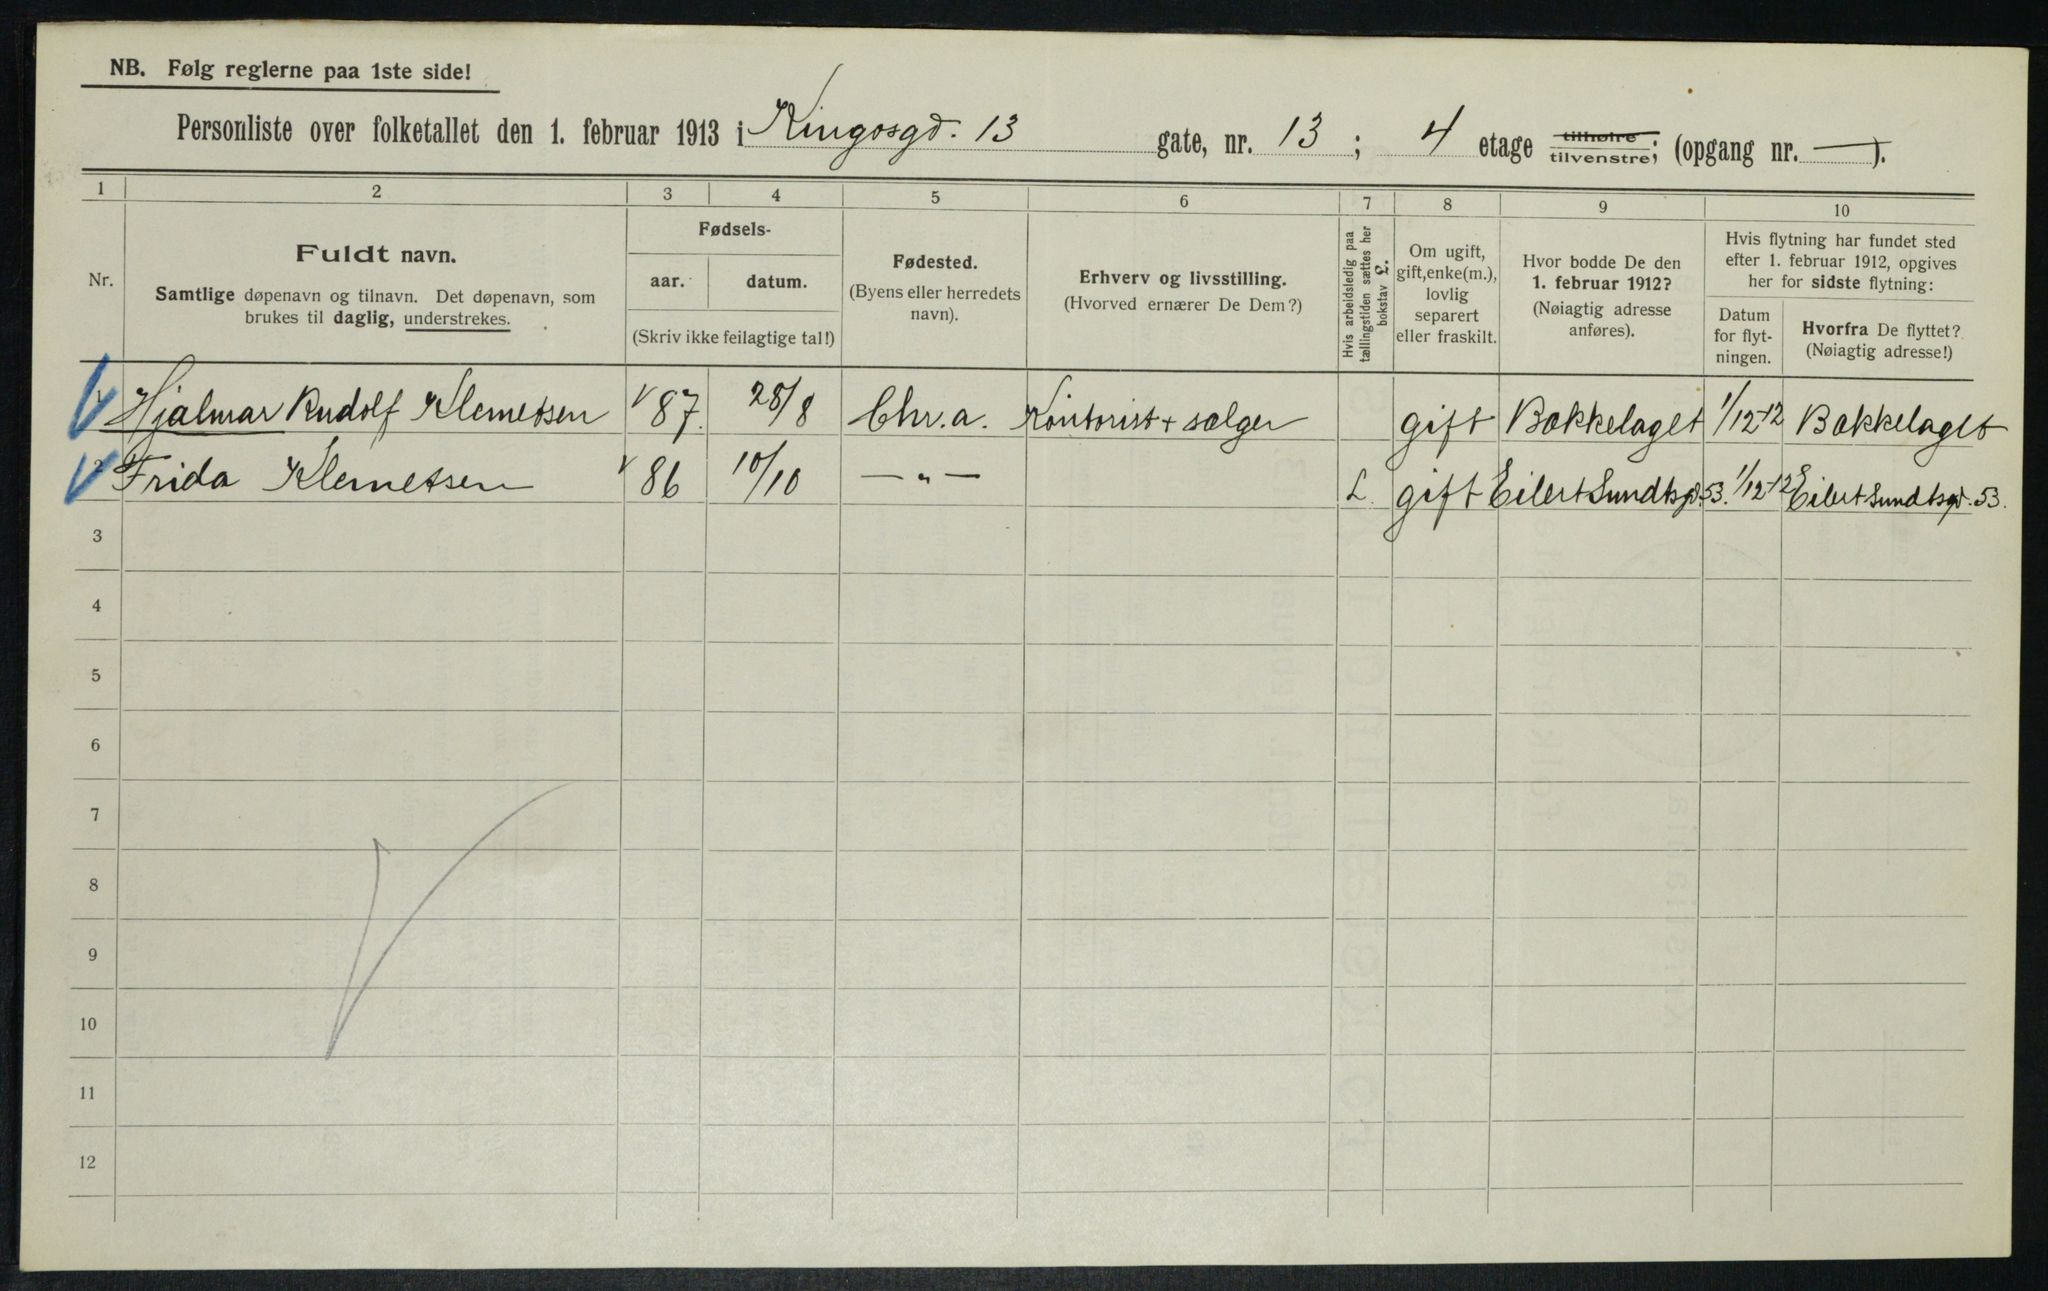 NB. Følg reglerne paa 1ste side!
Personliste over folketallet den 1. februar 1913 i Kingosgd. 13 gate, nr. 13 ; 4 etage tilhøire tilvenstre; (opgang nr. — ).
1 2 3 4 5 6 7 8 9 10
Nr.
Fuldt navn.
Samtlige døpenavn og tilnavn. Det døpenavn, som
brukes til daglig, understrekes.
Fødsels-
aar. datum.
(Skriv ikke feilagtige tal!)
Fødested.
(Byens eller herredets
navn).
Erhverv og livsstilling.
(Hvorved ernærer De Dem?)
Hvis arbeidsledig paa
tællingstiden sættes her
bokstav L.
Om ugift,
gift, enke(m.),
lovlig
separert
eller fraskilt.
Hvor bodde De den
1. februar 1912?
(Nøiagtig adresse
anføres).
Hvis flytning har fundet sted
efter 1. februar 1912, opgives
her for sidste flytning:
Datum
for flyt-
ningen.
Hvorfra De flyttet?
(Nøiagtig adresse!)
1 Hjalmar Rudolf Klemetsen 87. 28/8 Chr.a. Kontorist + sælger gift Bækkelaget 1/12-12 Bækkelaget
2 Frida Klemetsen 86 10/10 — „ — L. gift Eilert Sundtsgd. 53. 1/12-12 Eilert Sundtsgd. 53.
3
4
5
6
7
8
9
10
11
12